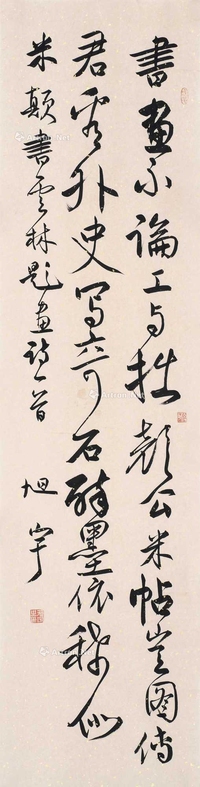 書畫不論工与拙顏公米帖豈圖傳
君看外史写奇石醉墨依稀似
米顛書雲林題畫詩一首 旭宇